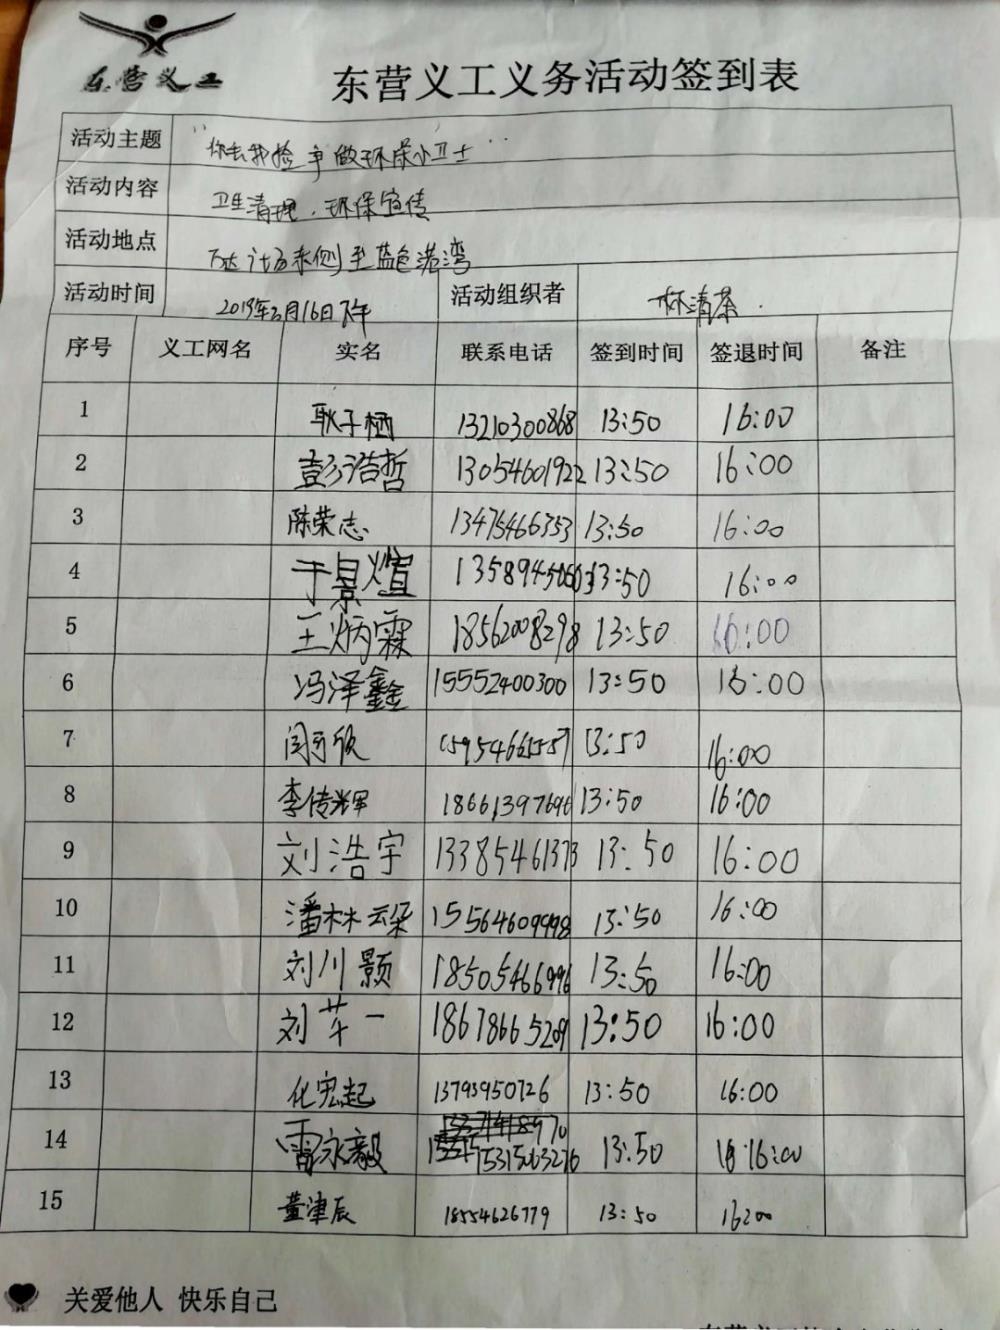 东营义工
东营义工义务活动签到表
活动主题 "你丢我捡 争做环保小卫士"
活动内容 卫生清理、环保宣传
活动地点 万达广场东侧至蓝色港湾
活动时间 2019年3月16日下午 活动组织者 一杯清茶
序号 义工网名 实名 联系电话 签到时间 签退时间 备注
1 耿子栖 13210300868 13:50 16:00
2 彭浩哲 13054601922 13:50 16:00
3 陈荣志 13475466353 13:50 16:00
4 于景煊 13:50 16:00
5 王炳霖 18562008298 13:50 16:00
6 冯泽鑫 15552400300 13:50 16:00
7 13:50 16:00
8 李传辉 18661397696 13:50 16:00
9 刘浩宇 13385461373 13:50 16:00
10 潘林云朵 15564609998 13:50 16:00
11 刘川颢 18505466996 13:50 16:00
12 刘芊一 18678665209 13:50 16:00
13 化宏起 13793950726 13:50 16:00
14 雷永毅 15315063276 13:50 16:00
15 董津辰 18554626779 13:50 16:00
关爱他人 快乐自己